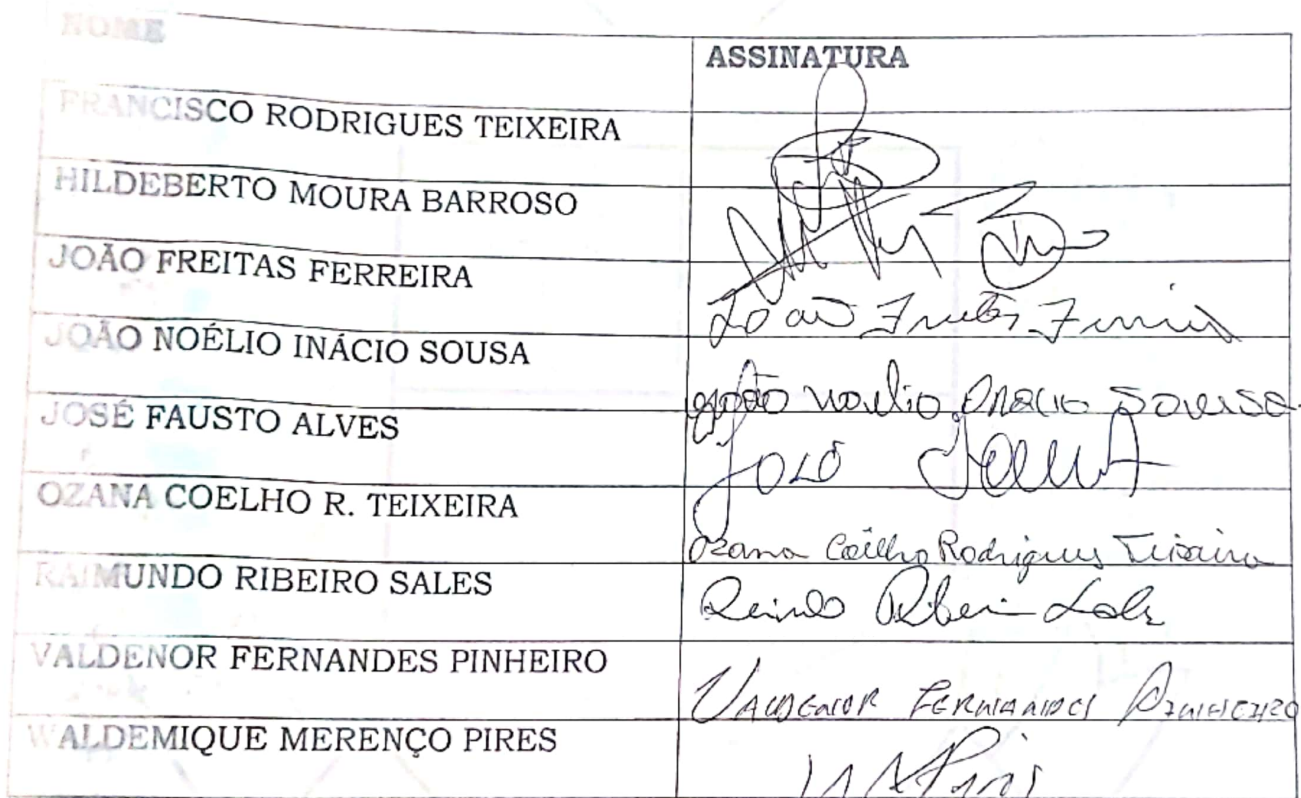 NOME
ASSINATURA
FRANCISCO RODRIGUES TEIXEIRA
HILDEBERTO MOURA BARROSO
JOÃO FREITAS FERREIRA
João Freitas Ferreira
JOÃO NOÉLIO INÁCIO SOUSA
João Noelio Inacio Sousa
JOSÉ FAUSTO ALVES
José
OZANA COELHO R. TEIXEIRA
Ozana Coelho Rodrigues Teixeira
RAIMUNDO RIBEIRO SALES
Ribeiro Sales
VALDENOR FERNANDES PINHEIRO
VALDENOR FERNANDES PINHEIRO
WALDEMIQUE MERENÇO PIRES